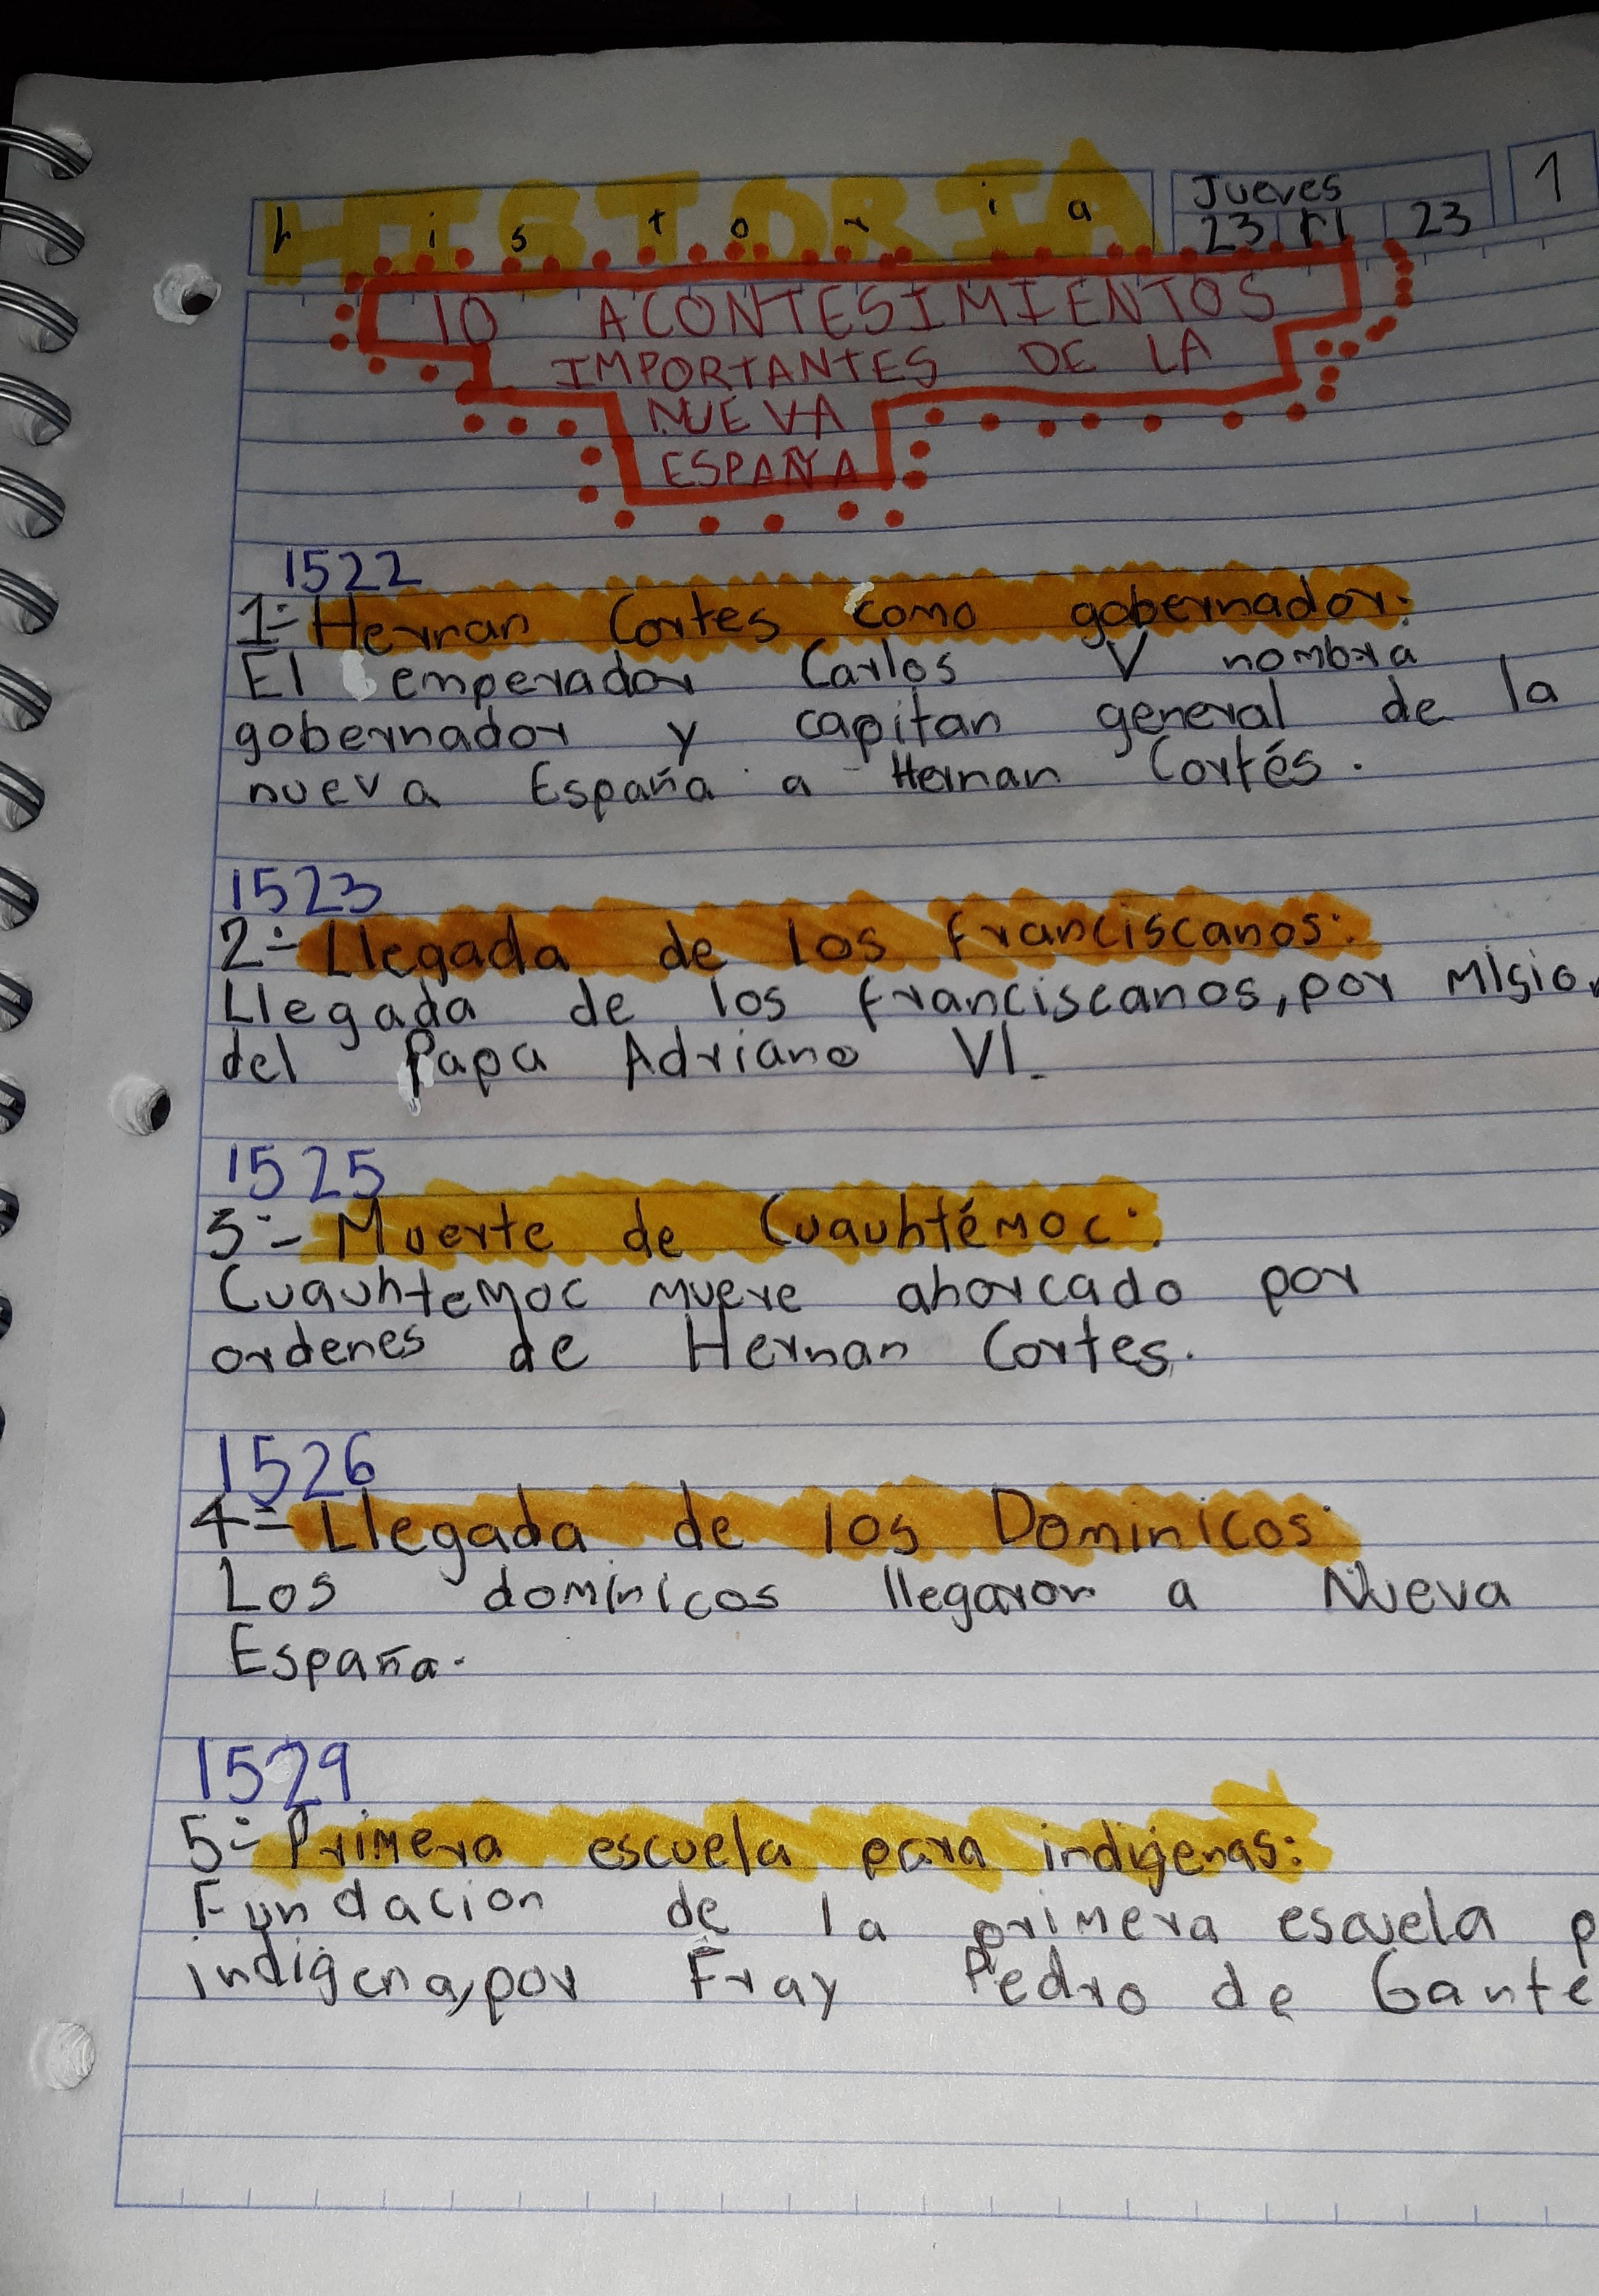 HISTORIA
historia
Jueves
23 11 23
1
10 ACONTESIMIENTOS
IMPORTANTES DE LA
NUEVA
ESPAÑA
1522
1- Hernan Cortes como gobernador:
El emperador Carlos V nombra
gobernador y capitan general de la
nueva España a Hernan Cortés.
1523
2- Llegada de los franciscanos:
Llegada de los franciscanos, por mision
del Papa Adriano VI.
1525
3- Muerte de Cuauhtémoc:
Cuauhtemoc muere ahorcado por
ordenes de Hernan Cortes.
1526
4- Llegada de los Dominicos:
Los dominicos llegaron a Nueva
España.
1529
5- Primera escuela para indigenas:
Fundacion de la primera escuela p
indigena, por Fray Pedro de Gante